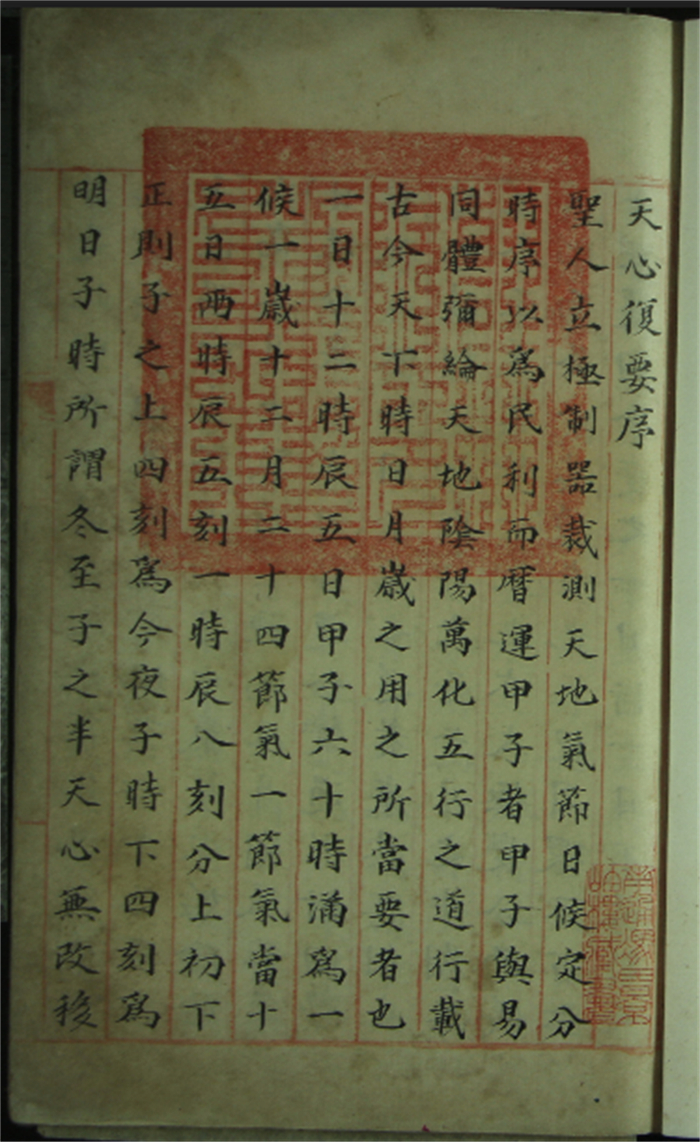 天心復要序
聖人立極制器裁測天地氣節日候定分
時序以爲民利而暦運甲子者甲子與易
同體彌綸天地陰陽萬化五行之道行載
古今天下時日月嵗之用之所當要者也
一日十二時辰五日甲子六十時滿爲一
候一嵗十二月二十四節氣一節氣當十
五日兩時辰五刻一時辰八刻分上初下
正則子之上四刻爲今夜子時下四刻爲
明日子時所謂冬至子之半天心無改移